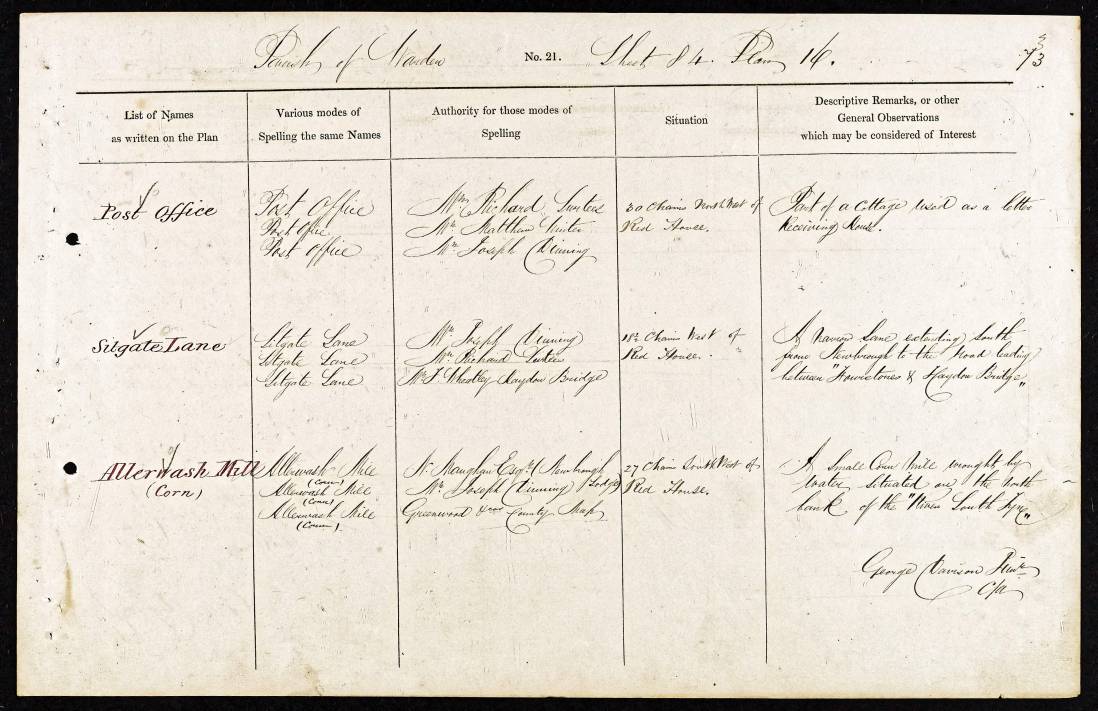 Parish of Warden No. 21. Sheet 84. Plan 16. 73
List of Names
as written on the Plan
Various modes of
Spelling the same Names
Authority for those modes of
Spelling
Situation
Descriptive Remarks, or other
General Observations
which may be considered of Interest
Post Office
Post Office
Post Office
Post Office
Richard
Mr. Matthew
Mr. Joseph Dinning
30 Chains North West of
Red House.
Part of a Cottage used as a letter
Receiving House.
Sitgate Lane
Sitgate Lane
Sitgate Lane
Sitgate Lane
Mr. Joseph Dinning
Mr. Richard
Mr J. Haydon Bridge
Chains West of
Red House.
A narrow Lane extending South
from Newbrough to the Road leading
between "Fourstones & Haydon Bridge"
Allerwash Mill
(Corn)
Allerwash Mill
(Corn)
Allerwash Mill
(Corn)
Allerwash Mill
(Corn)
N. Maughan Esqr. (Newbrough
Lodge)
Mr. Joseph Dinning
Greenwood County Map
27 Chains South West of
Red House.
A Small Corn Mill wrought by
Water, situated on the North
bank of the "River South Tyne"
George Davison
C/a